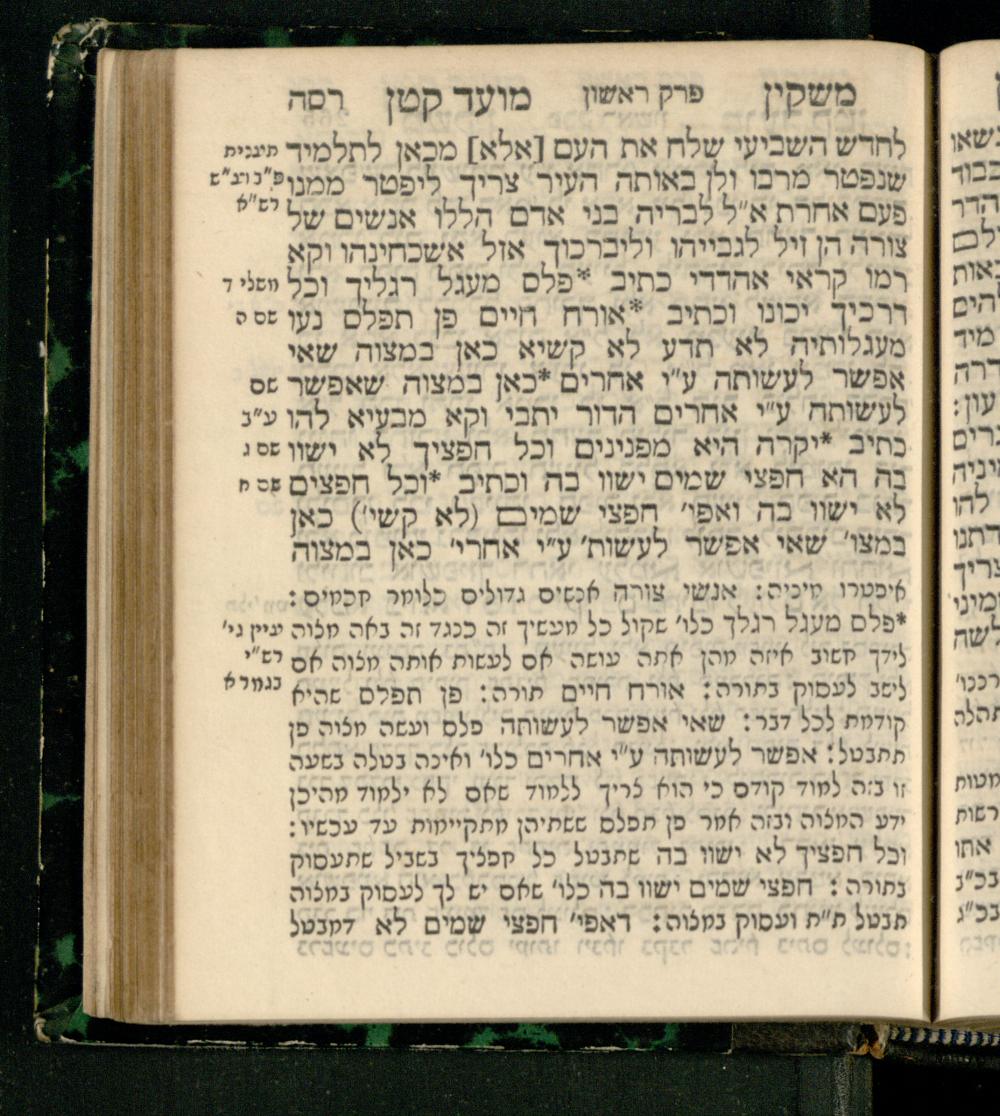 משקין פרק ראשון מועד קטן רסה
לחדש השביעי שלח את העם [אלא] מכאן לתלמיד
שנפטר מרבו ולן באותה העיר צריך ליפטר ממנו
פעם אחרת א"ל לבריה בני אדם הללו אנשים של
צורה הן זיל לגבייהו וליברכוך אזל אשכחינהו וקא
רמו קראי אהדדי כתיב *פלס מעגל רגליך וכל
דרכיך יכונו וכתיב *אורח חיים פן תפלס נעו
מעגלותיה לא תדע לא קשיא כאן במצוה שאי
אפשר לעשותה ע"י אחרים *כאן במצוה שאפשר
לעשותה ע"י אחרים הדור יתבי וקא מבעיא להו
כתיב *יקרה היא מפנינים וכל חפציך לא ישוו
בה הא חפצי שמים ישוו בה וכתיב *וכל חפצים
לא ישוו בה ואפי' חפצי שמים (לא קשי') כאן
במצו' שאי אפשר לעשות' ע"י אחרי' כאן במצוה
תיצבית
פ"ב וצ"ש
רש"א
משלי ד
שם ה
שם
ע"ב
שם ג
שם ח
איפטרו מיניה: אנשי צורה אנשים גדולים כלומר חכמים:
*פלס מעגל רגלך כלו' שקול כל מעשיך זה כנגד זה באה מצוה
לידך חשוב איזה מהן אתה עושה אם לעשות אותה מצוה אם
לישב לעסוק בתורה: אורח חיים תורה: פן תפלס שהיא
קודמת לכל דבר: שאי אפשר לעשותה פלס ועשה מצוה פן
תתבטל: אפשר לעשותה ע"י אחרים כלו' ואינה בטלה בשעה
זו בזה למוד קודם כי הוא צריך ללמוד שאם לא ילמוד מהיכן
ידע המצוה ובזה אמר פן תפלס ששתיהן מתקיימות עד עכשיו:
וכל חפציך לא ישוו בה שתבטל כל חפציך בשביל שתעסוק
בתורה: חפצי שמים ישוו בה כלו' שאם יש לך לעסוק במצוה
תבטל ת"ת ועסוק במצוה: דאפי' חפצי שמים לא דמבטל
עיין בי'
רש"י
בגמרא